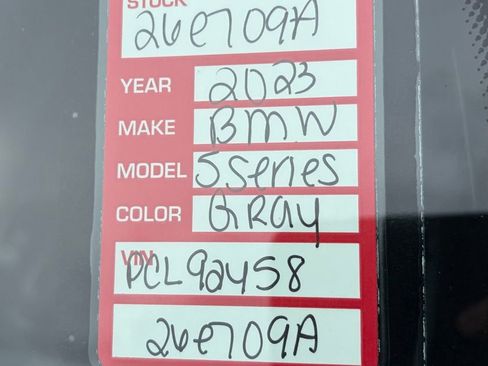 STOCK
26e709A
YEAR 2023
MAKE BMW
MODEL 5 Series
COLOR GRay
VIN
PCL92458
26e709A